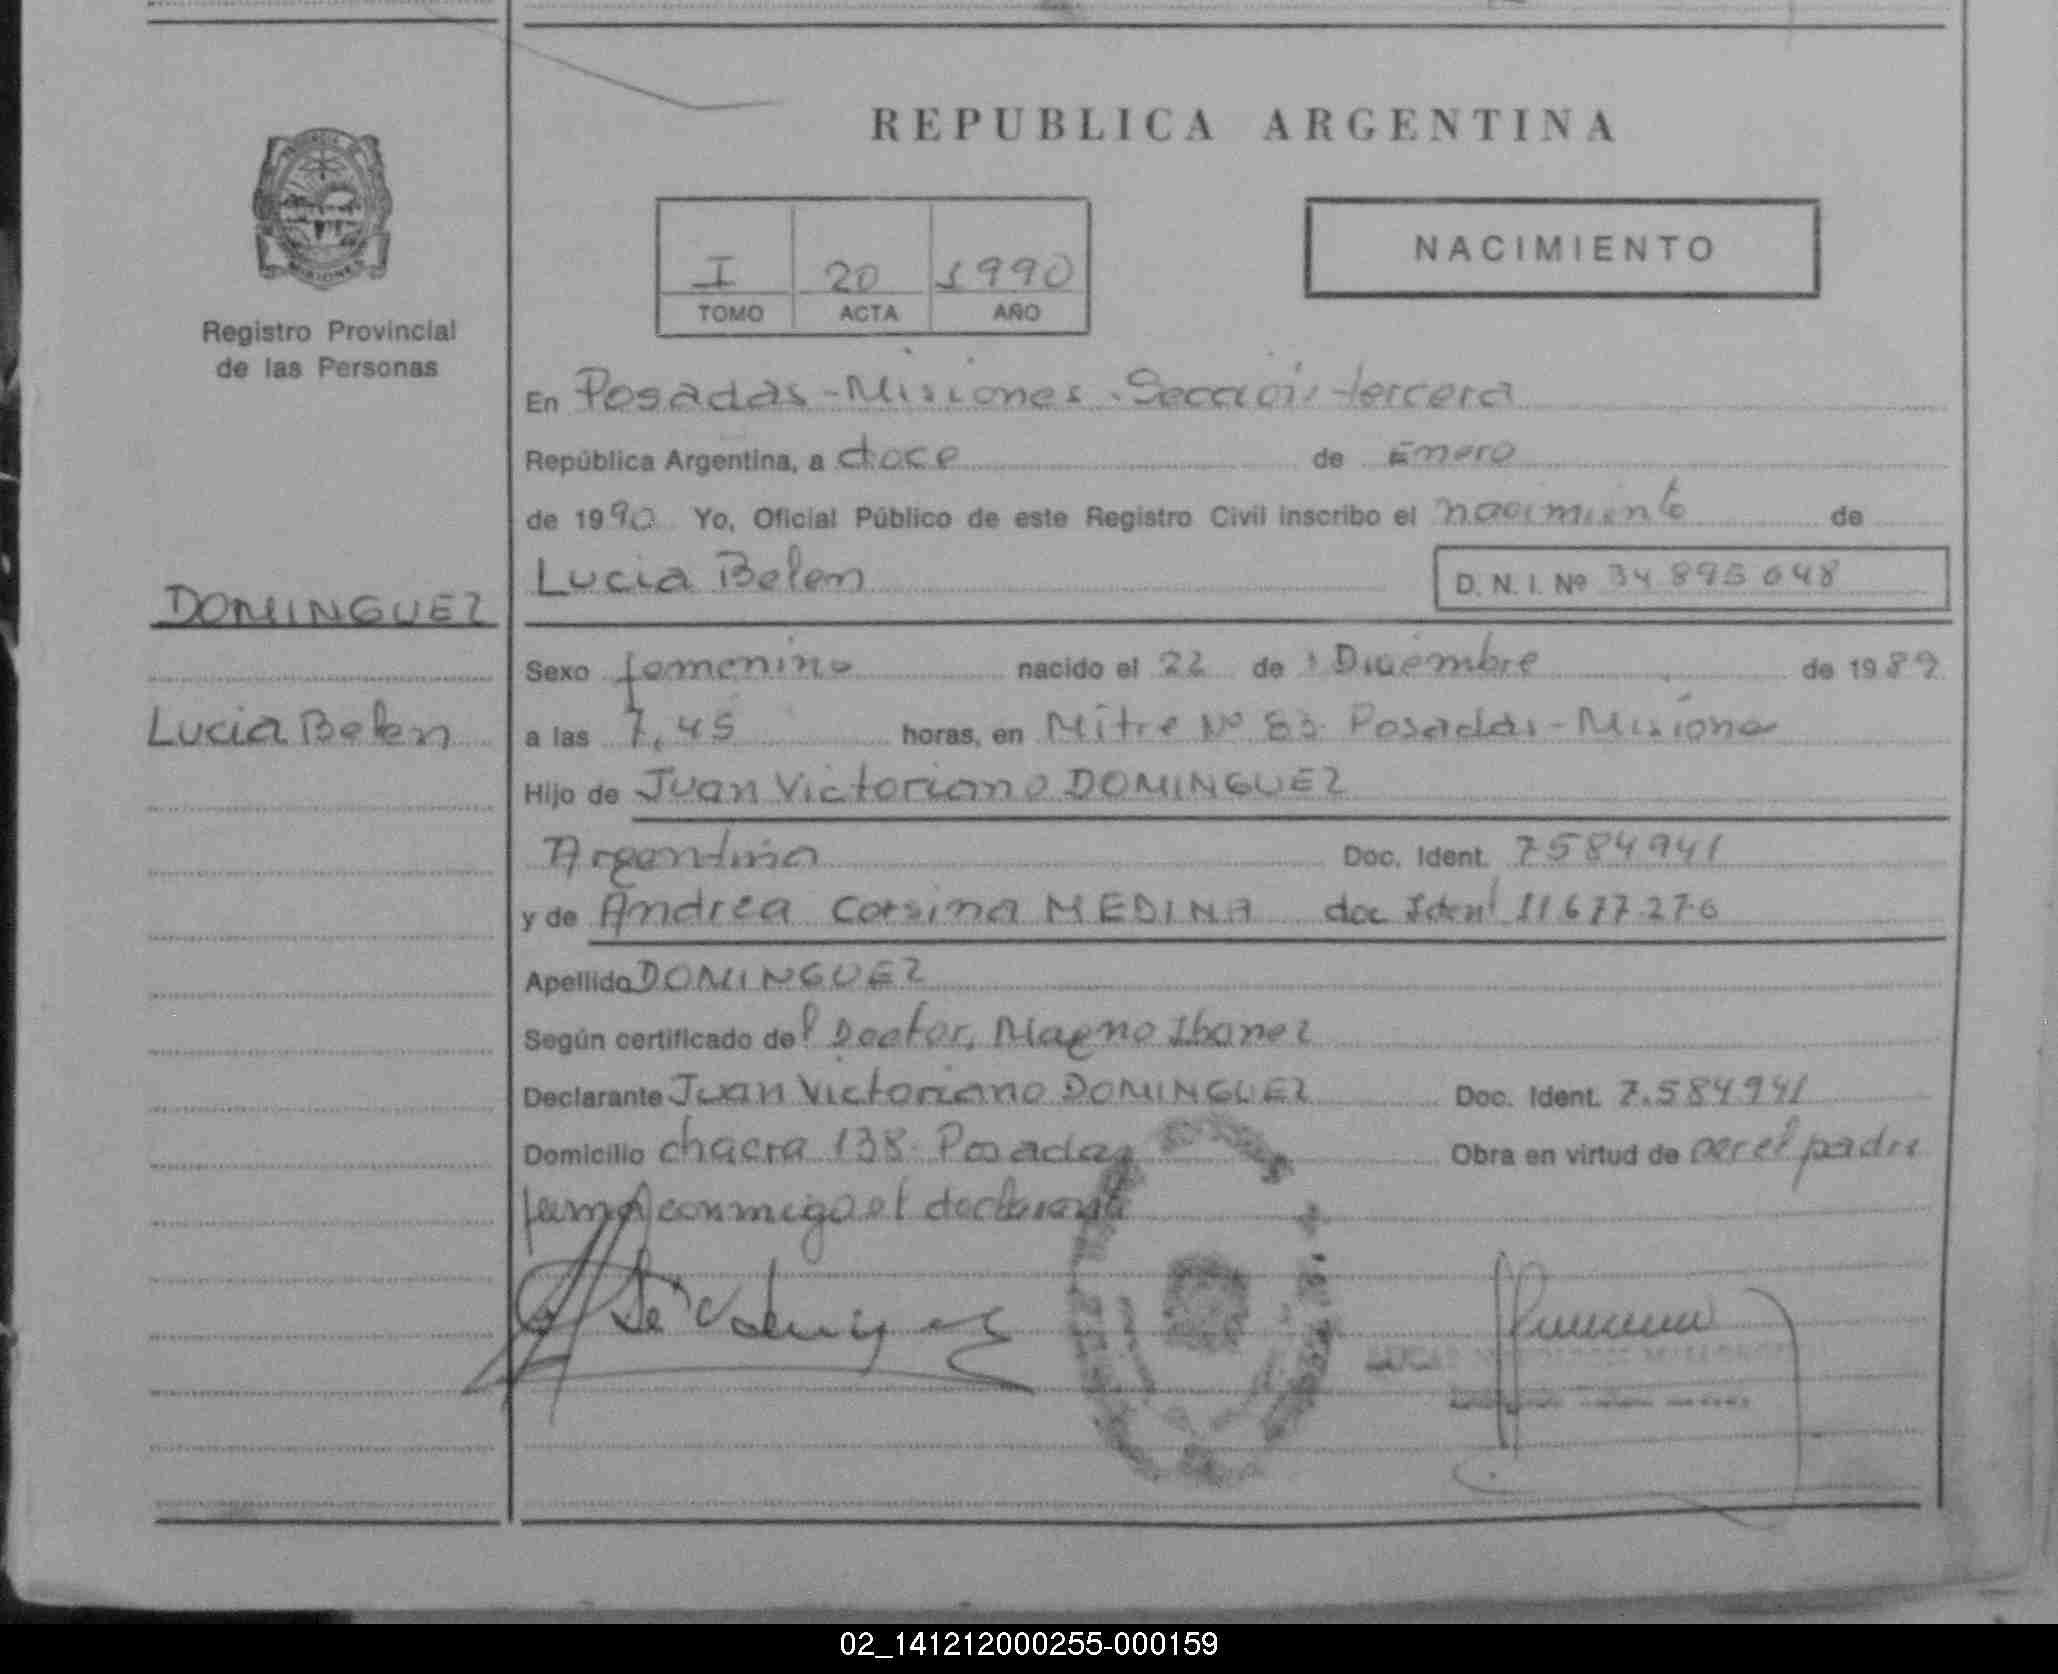 REPUBLICA ARGENTINA
I 20 1990
TOMO ACTA AÑO
NACIMIENTO
Registro Provincial
de las Personas
DOMINGUEZ
Lucia Belen
En Posadas - Misiones - Sección tercera
República Argentina, a doce de Enero
de 1990 Yo, Oficial Público de este Registro Civil inscribo el nacimiento de
Lucia Belen D. N. I. Nº 34 895 048
Sexo femenino nacido el 22 de Diciembre de 1989
a las 7,45 horas, en Mitre Nº 83 Posadas - Misiones
Hijo de Juan Victoriano DOMINGUEZ
Argentina Doc. Ident. 7584941
y de Andrea Corsina MEDINA doc Ident 11677276
Apellido DOMINGUEZ
Según certificado del Doctor, Magno Ibanez
Declarante Juan Victoriano DOMINGUEZ Doc. Ident. 7.584941
Domicilio chacra 138 - Posadas Obra en virtud de ser el padre
firma conmigo el declarante
02_141212000255-000159